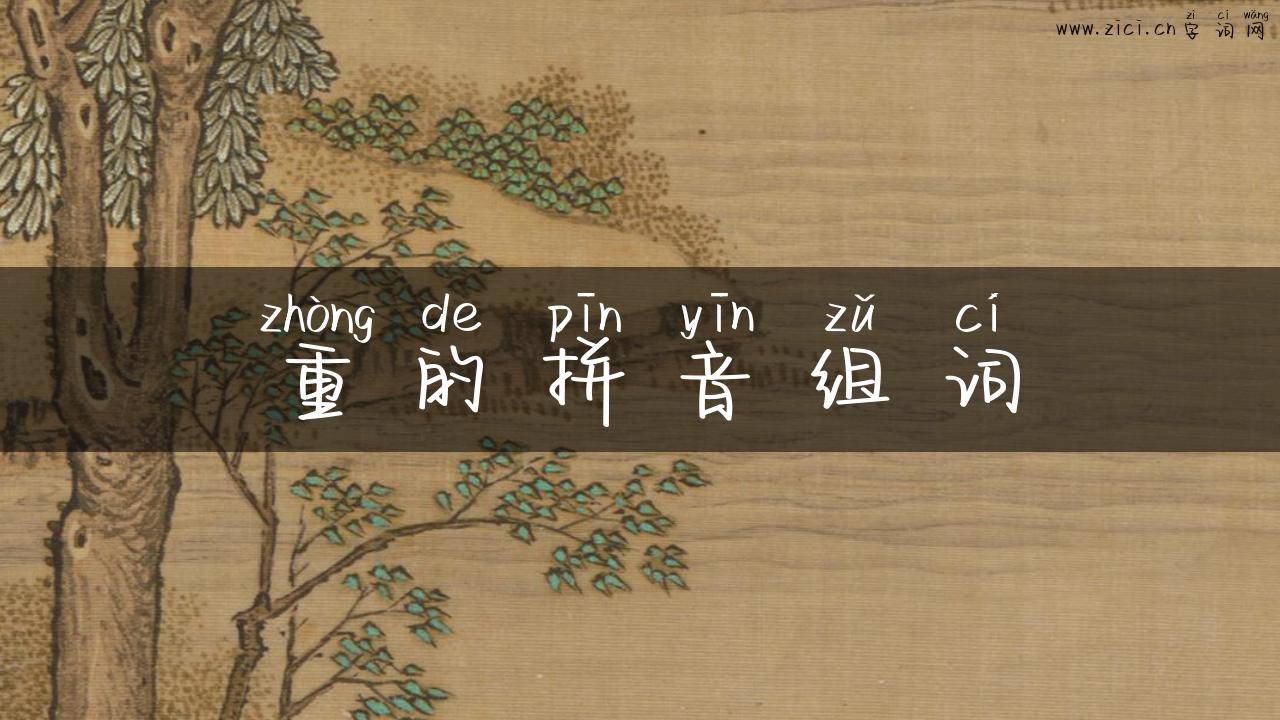 zì cí wǎng
www.zici.cn 字词网
zhòng de pīn yīn zǔ cí
重的拼音组词